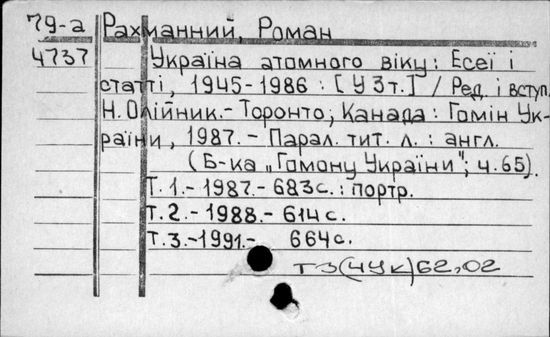 79-а Рахманний, Роман
4737 Україна атомного віку: Есеї і
статті, 1945-1986 : [У 3т.] / Ред. і вступ.
Н. Олійник.- Торонто; Канада: Гомін Ук-
раїни, 1987. - Парал. тит. л. : англ.
(Б-ка „Гомону України"; ч. 65).
Т. 1.- 1987.- 683 с. : портр.
Т. 2.- 1988.- 614 с.
Т. 3.-1991.- 664 с.
Т3(4Ук)62,02